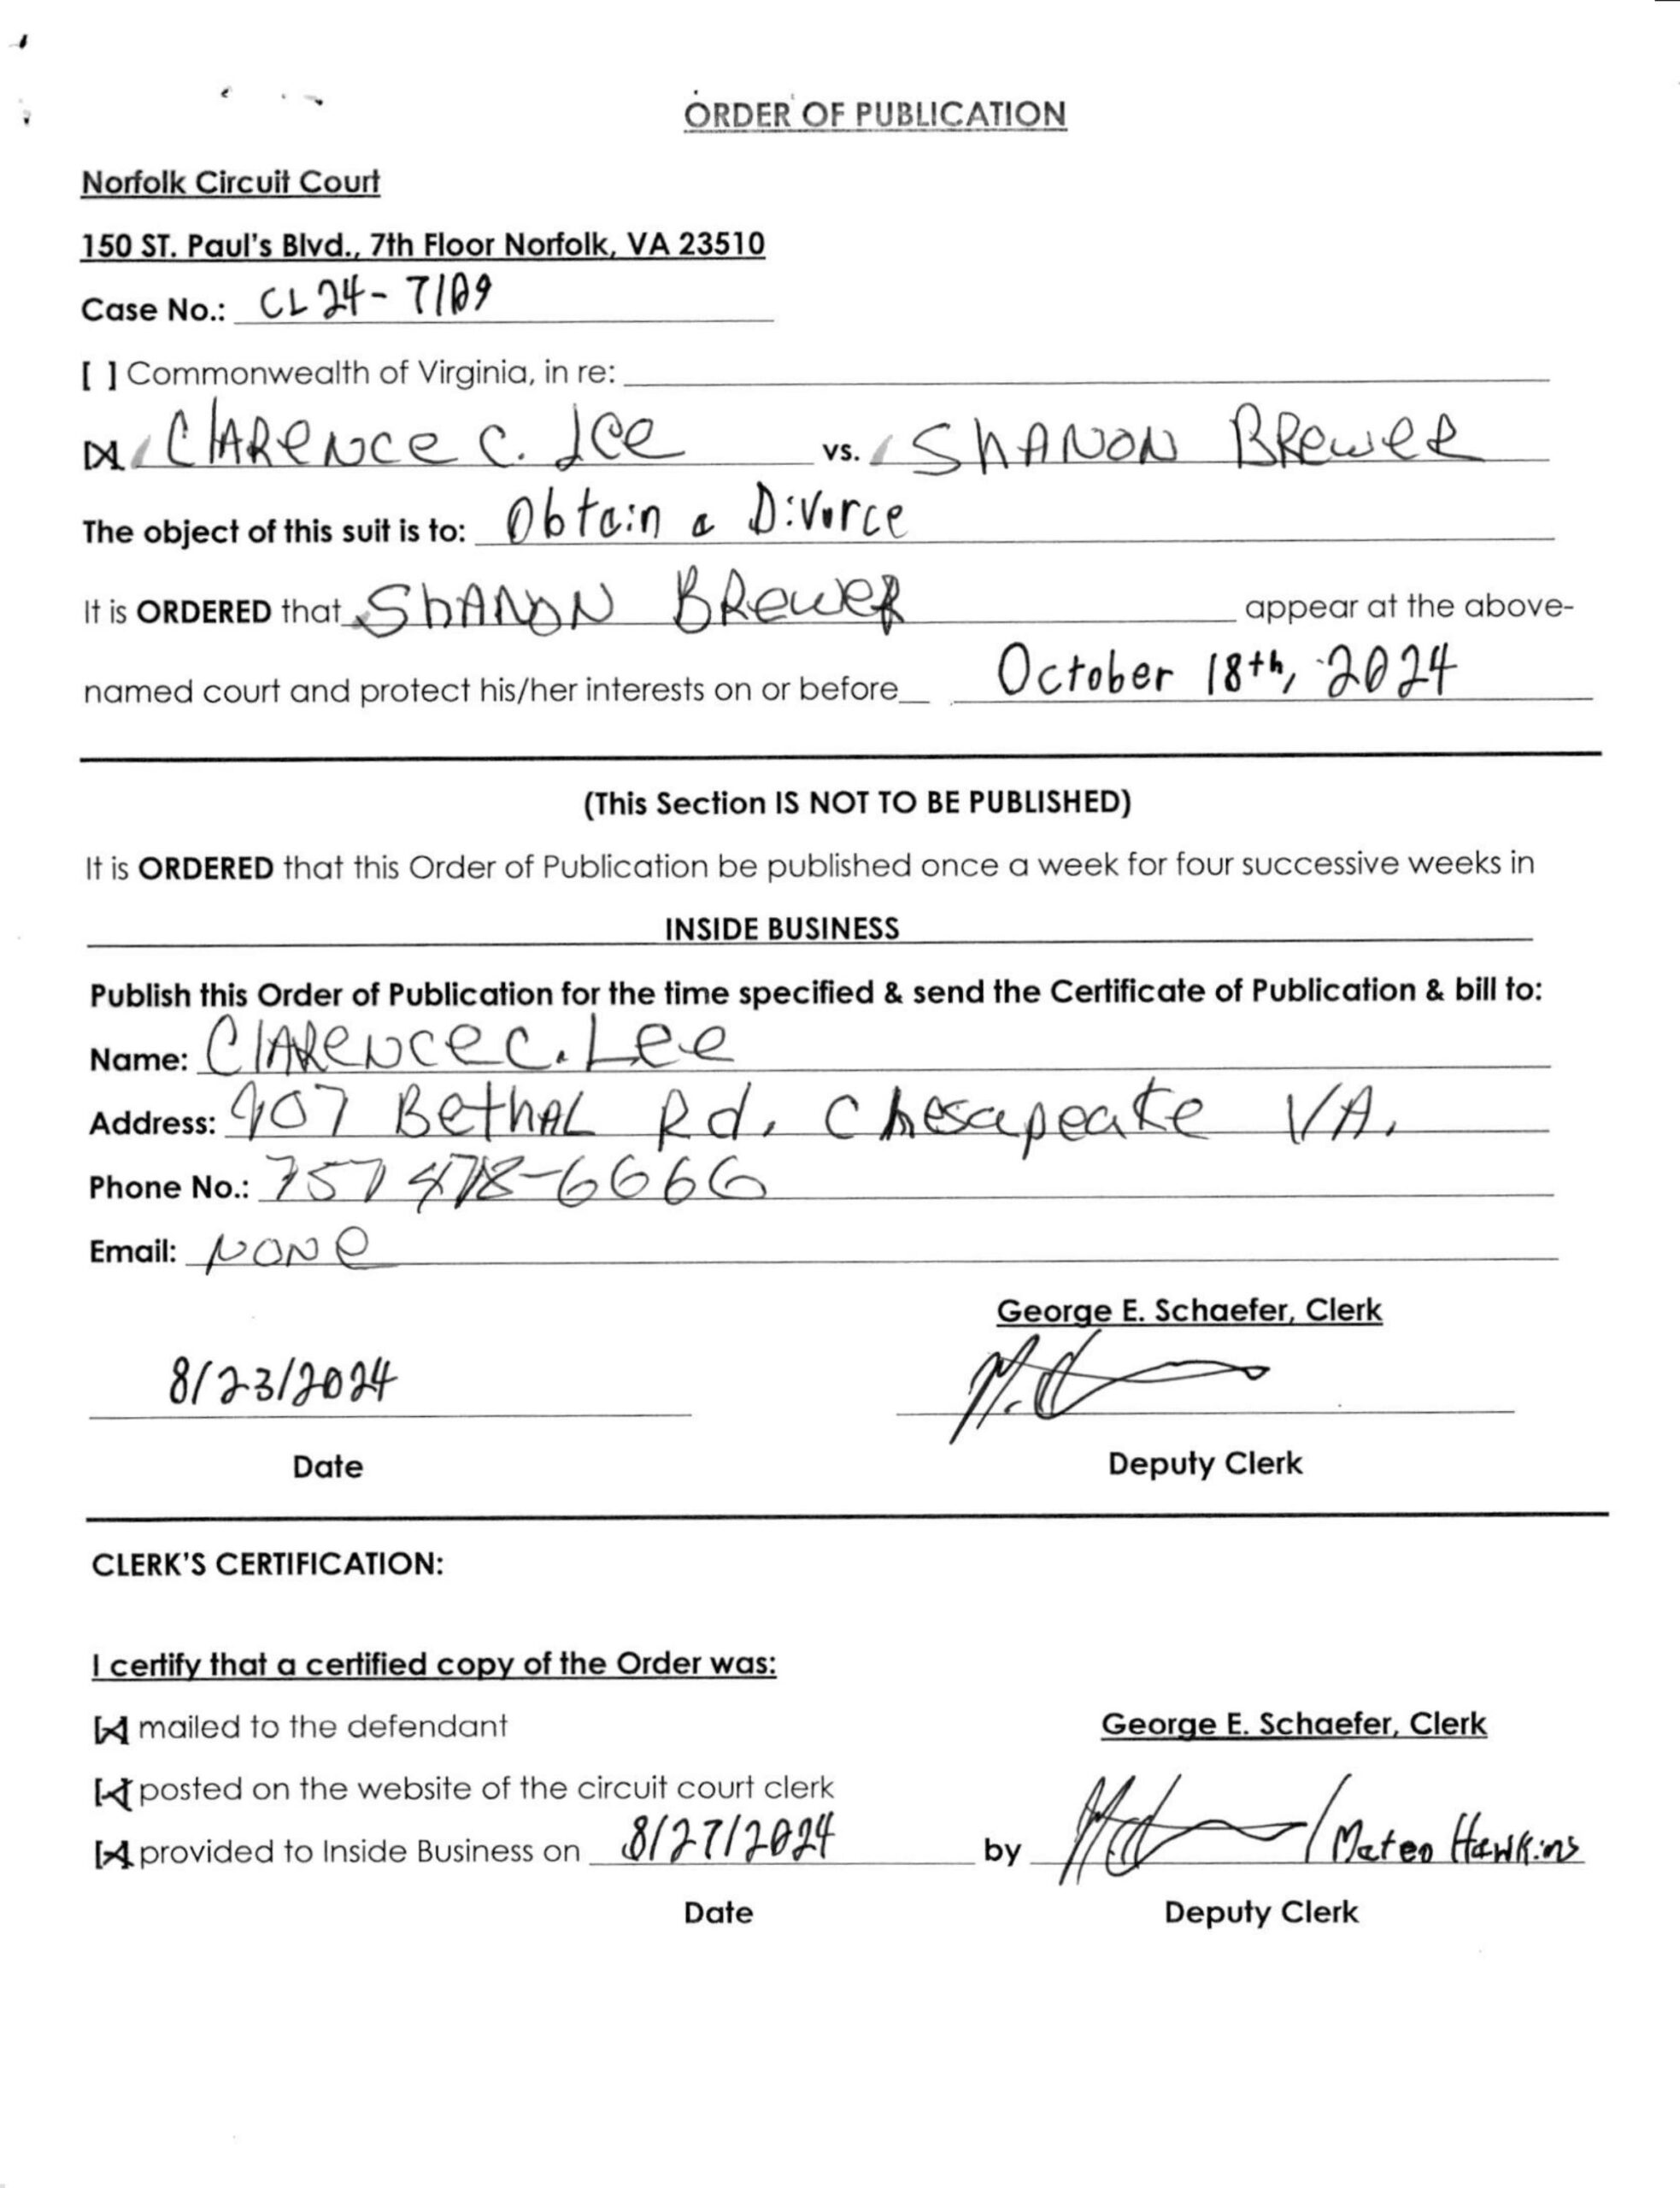 ORDER OF PUBLICATION
Norfolk Circuit Court
150 ST. Paul's Blvd., 7th Floor Norfolk, VA 23510
Case No.: CL24-7109
[ ] Commonwealth of Virginia, in re:
[X] Clarence C. Lee vs. Shanon Brewer
The object of this suit is to: Obtain a Divorce
It is ORDERED that Shanon Brewer appear at the above-
named court and protect his/her interests on or before October 18th, 2024
(This Section IS NOT TO BE PUBLISHED)
It is ORDERED that this Order of Publication be published once a week for four successive weeks in
INSIDE BUSINESS
Publish this Order of Publication for the time specified & send the Certificate of Publication & bill to:
Name: Clarence C. Lee
Address: 907 Bethal Rd. Chesapeake VA.
Phone No.: 757 478-6666
Email: None
George E. Schaefer, Clerk
8/23/2024
Date Deputy Clerk
CLERK'S CERTIFICATION:
I certify that a certified copy of the Order was:
[X] mailed to the defendant George E. Schaefer, Clerk
[X] posted on the website of the circuit court clerk
[X] provided to Inside Business on 8/27/2024 by / Mateo Hawkins
Date Deputy Clerk